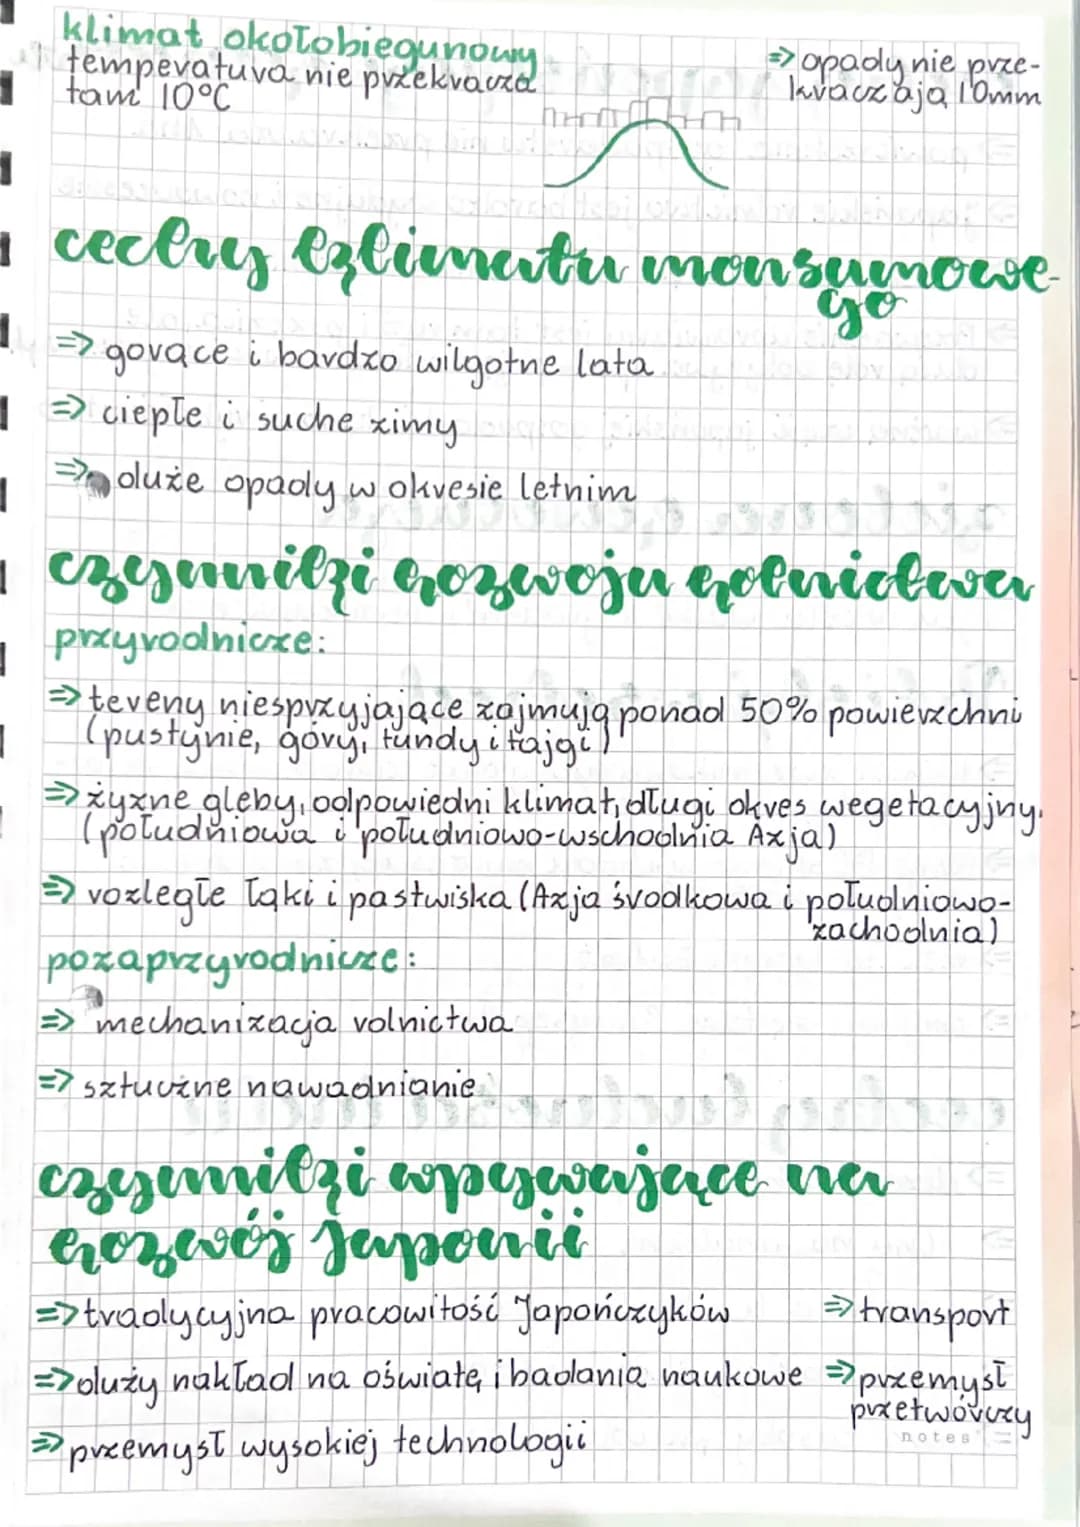 klimat okołobiegunowy
temperatura nie przekracza
tam 10°C
=> opady nie prze-
kraczają 10mm
cechy klimatu monsunowe-
go
=> gorące i bardzo wilgotne lata
=> ciepłe i suche zimy
=> duże opady w okresie letnim
czynniki rozwoju rolnictwa
przyrodnicze:
=> tereny niesprzyjające zajmują ponad 50% powierzchni
(pustynie, góry, tundy i tajgi)
=> żyzne gleby, odpowiedni klimat, długi okres wegetacyjny.
(południowa i południowo-wschodnia Azja)
=> rozległe łąki i pastwiska (Azja środkowa i południowo-
zachodnia)
pozaprzyrodnicze:
=> mechanizacja rolnictwa
=> sztuczne nawadnianie
czynniki wpływające na
rozwój Japonii
=> tradycyjna pracowitość Japończyków
=> transport
=> duży nakład na oświatę i badania naukowe
=> przemysł
przetwórczy
=> przemysł wysokiej technologii
notes